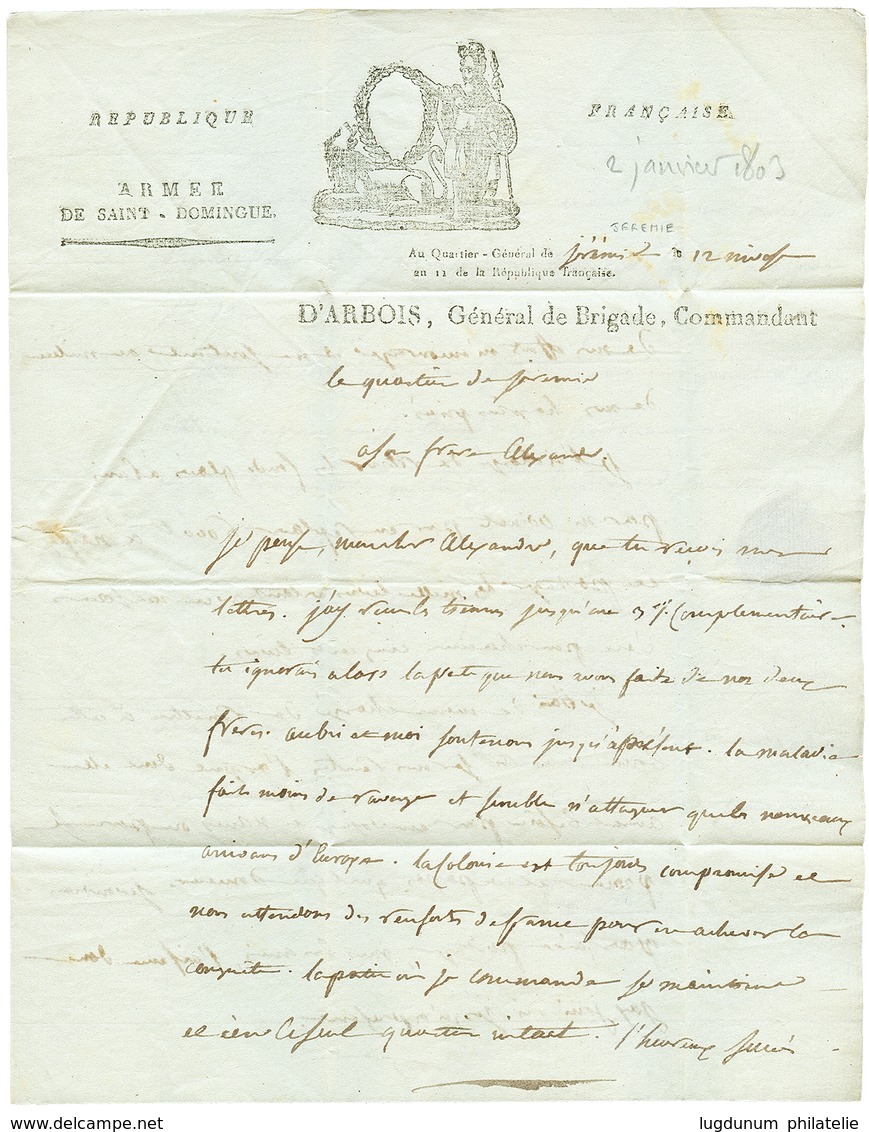 REPUBLIQUE FRANÇAISE.
2 janvier 1803
ARMEE
DE SAINT-DOMINGUE.
JEREMIE
Au Quartier-Général de jérémie le 12 nivose
an 11 de la République française.
D'ARBOIS, Général de Brigade, Commandant
le quartier de jeremie
a son frere Alexandre.
je pense, mon cher Alexandre, que tu reçois mes
lettres. j'ay reçu les tiennes jusqu'au 3e. Complementaire
tu ignorais alors la perte que nous avons faite de nos deux
freres. aubri et moi soutenons jusqu'à présent. la maladie
fait moins de ravage et semble n'attaquer que les nouveaux
arrivans d'Europe. la Colonie est toujours compromise et
nous attendons des renforts de france pour en achever la
conquête. la partie où je commande se maintient
et c'est le seul quartier intact. l'heureux succès
www.delcampe.net
lugdunum philatelie